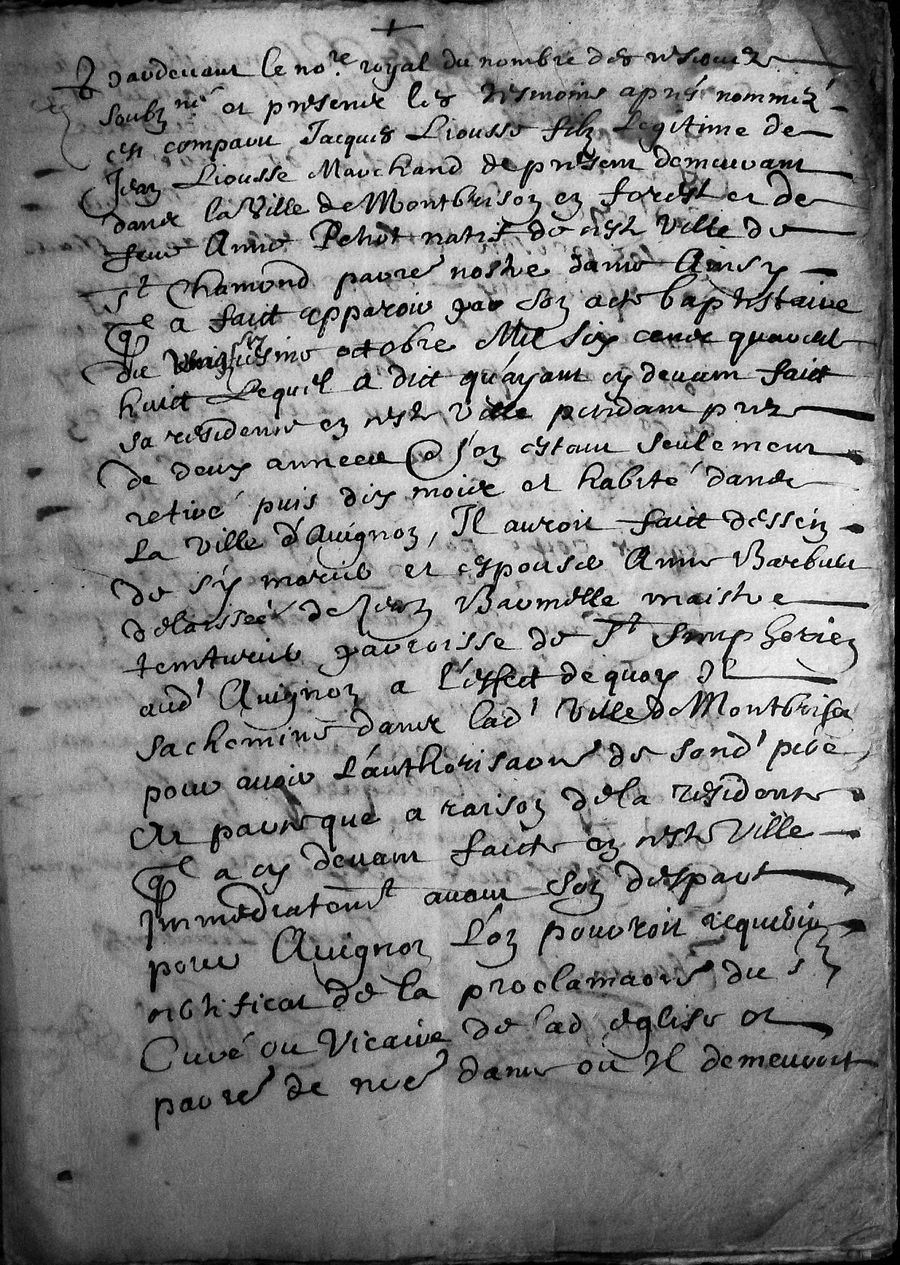 +
Pardevant le no.re royal du nombre des reservez
soubz.né et presence les tesmoins après nommez
est comparu Jacques Liousse filz Legitime de
Jean Liousse Marchand de present demeurant
dans la Ville de Montbrison en forest et de
feue Anne Petiot natif de ceste Ville de
St Chamond parre nostre dame Ainsy
ql a faict apparoir par son acte baptistaire
du octobre Mil six cents quarante
huict Lequel a dict qu'ayant cy devant faict
sa residence en ceste Ville pendant prez
de deux années s'en estant seulement
retiré puis dix mois et habité dans
La Ville d'Avignon, Il auroit faict dessein
de s'y marier et espouser Anne Barbier
delaissée de Jean Baumelle maistre
teinturier parroisse de St Simphorien
aud' Avignon a L'effect de quoy Il
sachemine dans lad' Ville de Montbrison
pour avoir L'authorisaon de sond' pere,
Et parceque a raison de la residence
ql a cy devant faicte en ceste Ville
Immediatemt avant son despart
pour Avignon L'on pourroit requerir
certificat de la proclamaon du sr
Curé ou Vicaire de lad' eglise et
parre de nre dame ou Il demeuroit